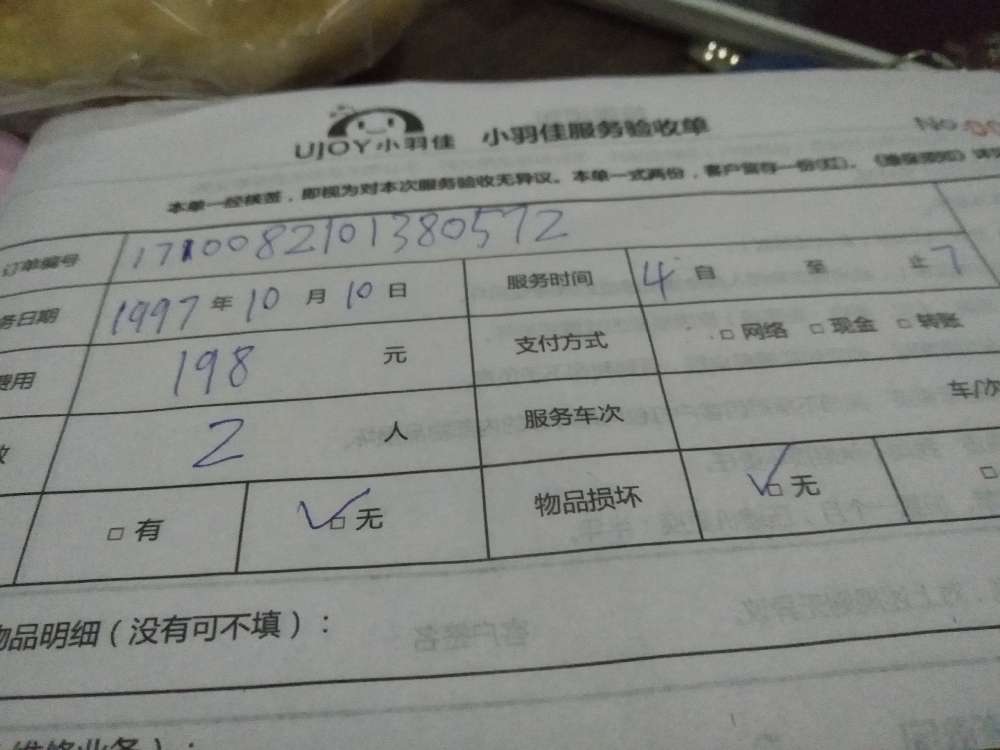 UJOY小羽佳 小羽佳服务验收单 No.00
本单一经核签,即视为对本次服务验收无异议。本单一式两份,客户留存一份(红)。《维保须知》详
订单编号 171008210138057 2
务日期 1997年10月10日 服务时间 4自 至 止7
费用 198 元 支付方式 □网络 □现金 □转账
数 2 人 服务车次 车/次
□有 √□无 物品损坏 √□无 □
物品明细(没有可不填):
维修业务):